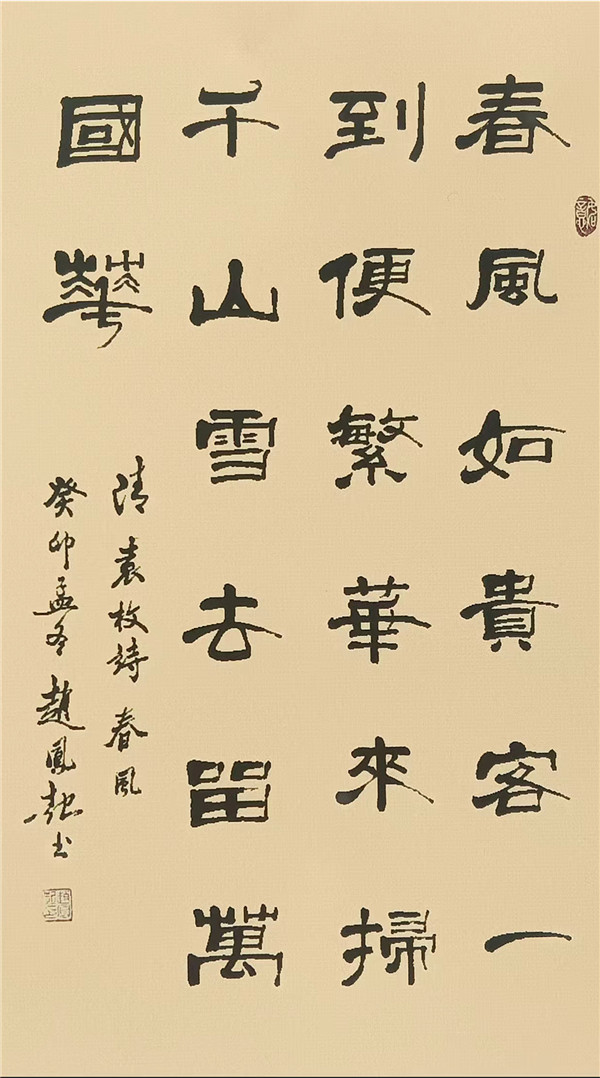 春風如貴客一
到便繁華來掃
千山雪去留萬
國華
清袁枚詩春風
癸卯孟冬趙鳳起書